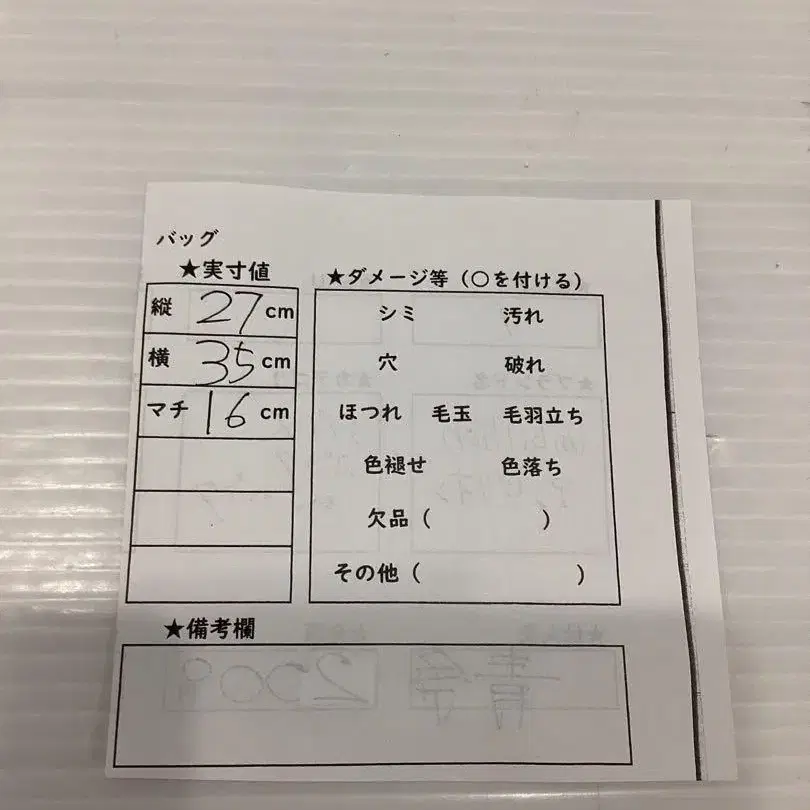 バッグ
★実寸値
縦 27 cm
横 35 cm
マチ 16 cm
★ダメージ等（○を付ける）
シミ 汚れ
穴 破れ
ほつれ 毛玉 毛羽立ち
色褪せ 色落ち
欠品（ ）
その他（ ）
★備考欄